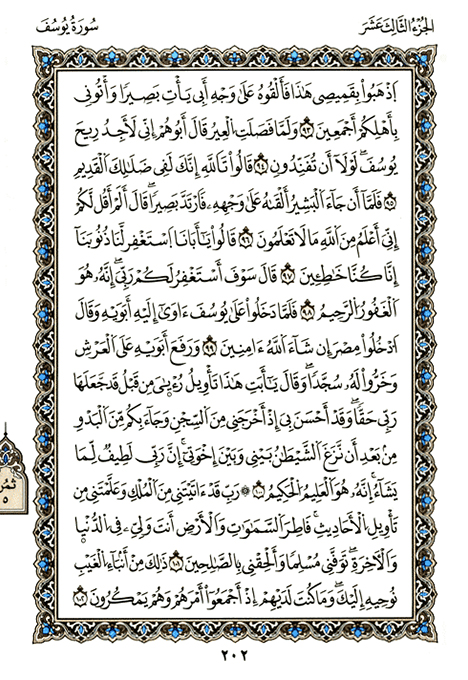 الجزء الثالث عشر
سورة يوسف
اَذْهَبُواْ بِقَمِيصِى هَٰذَا فَأَلْقُوهُ عَلَىٰ وَجْهِ أَبِى يَأْتِ بَصِيرًا وَأْتُونِى
بِأَهْلِكُمْ أَجْمَعِينَ ٩٣ وَلَمَّا فَصَلَتِ اِلْعِيرُ قَالَ أَبُوهُمْ إِنِّى لَأَجِدُ رِيحَ
يُوسُفَ لَوْلَآ أَن تُفَنِّدُونِ ٩٤ قَالُواْ تَاَللَّهِ إِنَّكَ لَفِى ضَلَٰلِكَ اَلْقَدِيمِ
٩٥ فَلَمَّآ أَن جَآءَ اَلْبَشِيرُ أَلْقَىٰهُ عَلَىٰ وَجْهِهِۦ فَارْتَدَّ بَصِيرًا قَالَ أَلَمْ أَقُل لَّكُمْ
إِنِّى أَعْلَمُ مِنَ اَللَّهِ مَا لَا تَعْلَمُونَ ٩٦ قَالُواْ يَٰٓأَبَانَا اَسْتَغْفِرْ لَنَا ذُنُوبَنَآ
إِنَّا كُنَّا خَٰطِـِٔينَ ٩٧ قَالَ سَوْفَ أَسْتَغْفِرُ لَكُمْ رَبِّى إِنَّهُۥ هُوَ
اَلْغَفُورُ اُلرَّحِيمُ ٩٨ فَلَمَّا دَخَلُواْ عَلَىٰ يُوسُفَ ءَاوَىٰٓ إِلَيْهِ أَبَوَيْهِ وَقَالَ
اَدْخُلُواْ مِصْرَ إِن شَآءَ اَللَّهُ ءَامِنِينَ ٩٩ وَرَفَعَ أَبَوَيْهِ عَلَى اَلْعَرْشِ
وَخَرُّواْ لَهُۥ سُجَّدًا وَقَالَ يَٰٓأَبَتِ هَٰذَا تَأْوِيلُ رُءْيَٰىَ مِن قَبْلُ قَدْ جَعَلَهَا
رَبِّى حَقًّا وَقَدْ أَحْسَنَ بِى إِذْ أَخْرَجَنِى مِنَ اَلسِّجْنِ وَجَآءَ بِكُم مِّنَ اَلْبَدْوِ
مِنۢ بَعْدِ أَن نَّزَغَ اَلشَّيْطَٰنُ بَيْنِى وَبَيْنَ إِخْوَتِى إِنَّ رَبِّى لَطِيفٌ لِّمَا
يَشَآءُ إِنَّهُۥ هُوَ اَلْعَلِيمُ اُلْحَكِيمُ ١٠٠ رَبِّ قَدْ ءَاتَيْتَنِى مِنَ اَلْمُلْكِ وَعَلَّمْتَنِى مِن
تَأْوِيلِ اِلْأَحَادِيثِ فَاطِرَ اَلسَّمَٰوَٰتِ وَالْأَرْضِ أَنتَ وَلِىِّۦ فِى اِلدُّنْيَا
وَالْأَخِرَةِ تَوَفَّنِى مُسْلِمًا وَأَلْحِقْنِى بِالصَّٰلِحِينَ ١٠١ ذَٰلِكَ مِنْ أَنۢبَآءِ اِلْغَيْبِ
نُوحِيهِ إِلَيْكَ وَمَا كُنتَ لَدَيْهِمْ إِذْ أَجْمَعُواْ أَمْرَهُمْ وَهُمْ يَمْكُرُونَ ١٠٢
ثمن
٥
٢٠٢